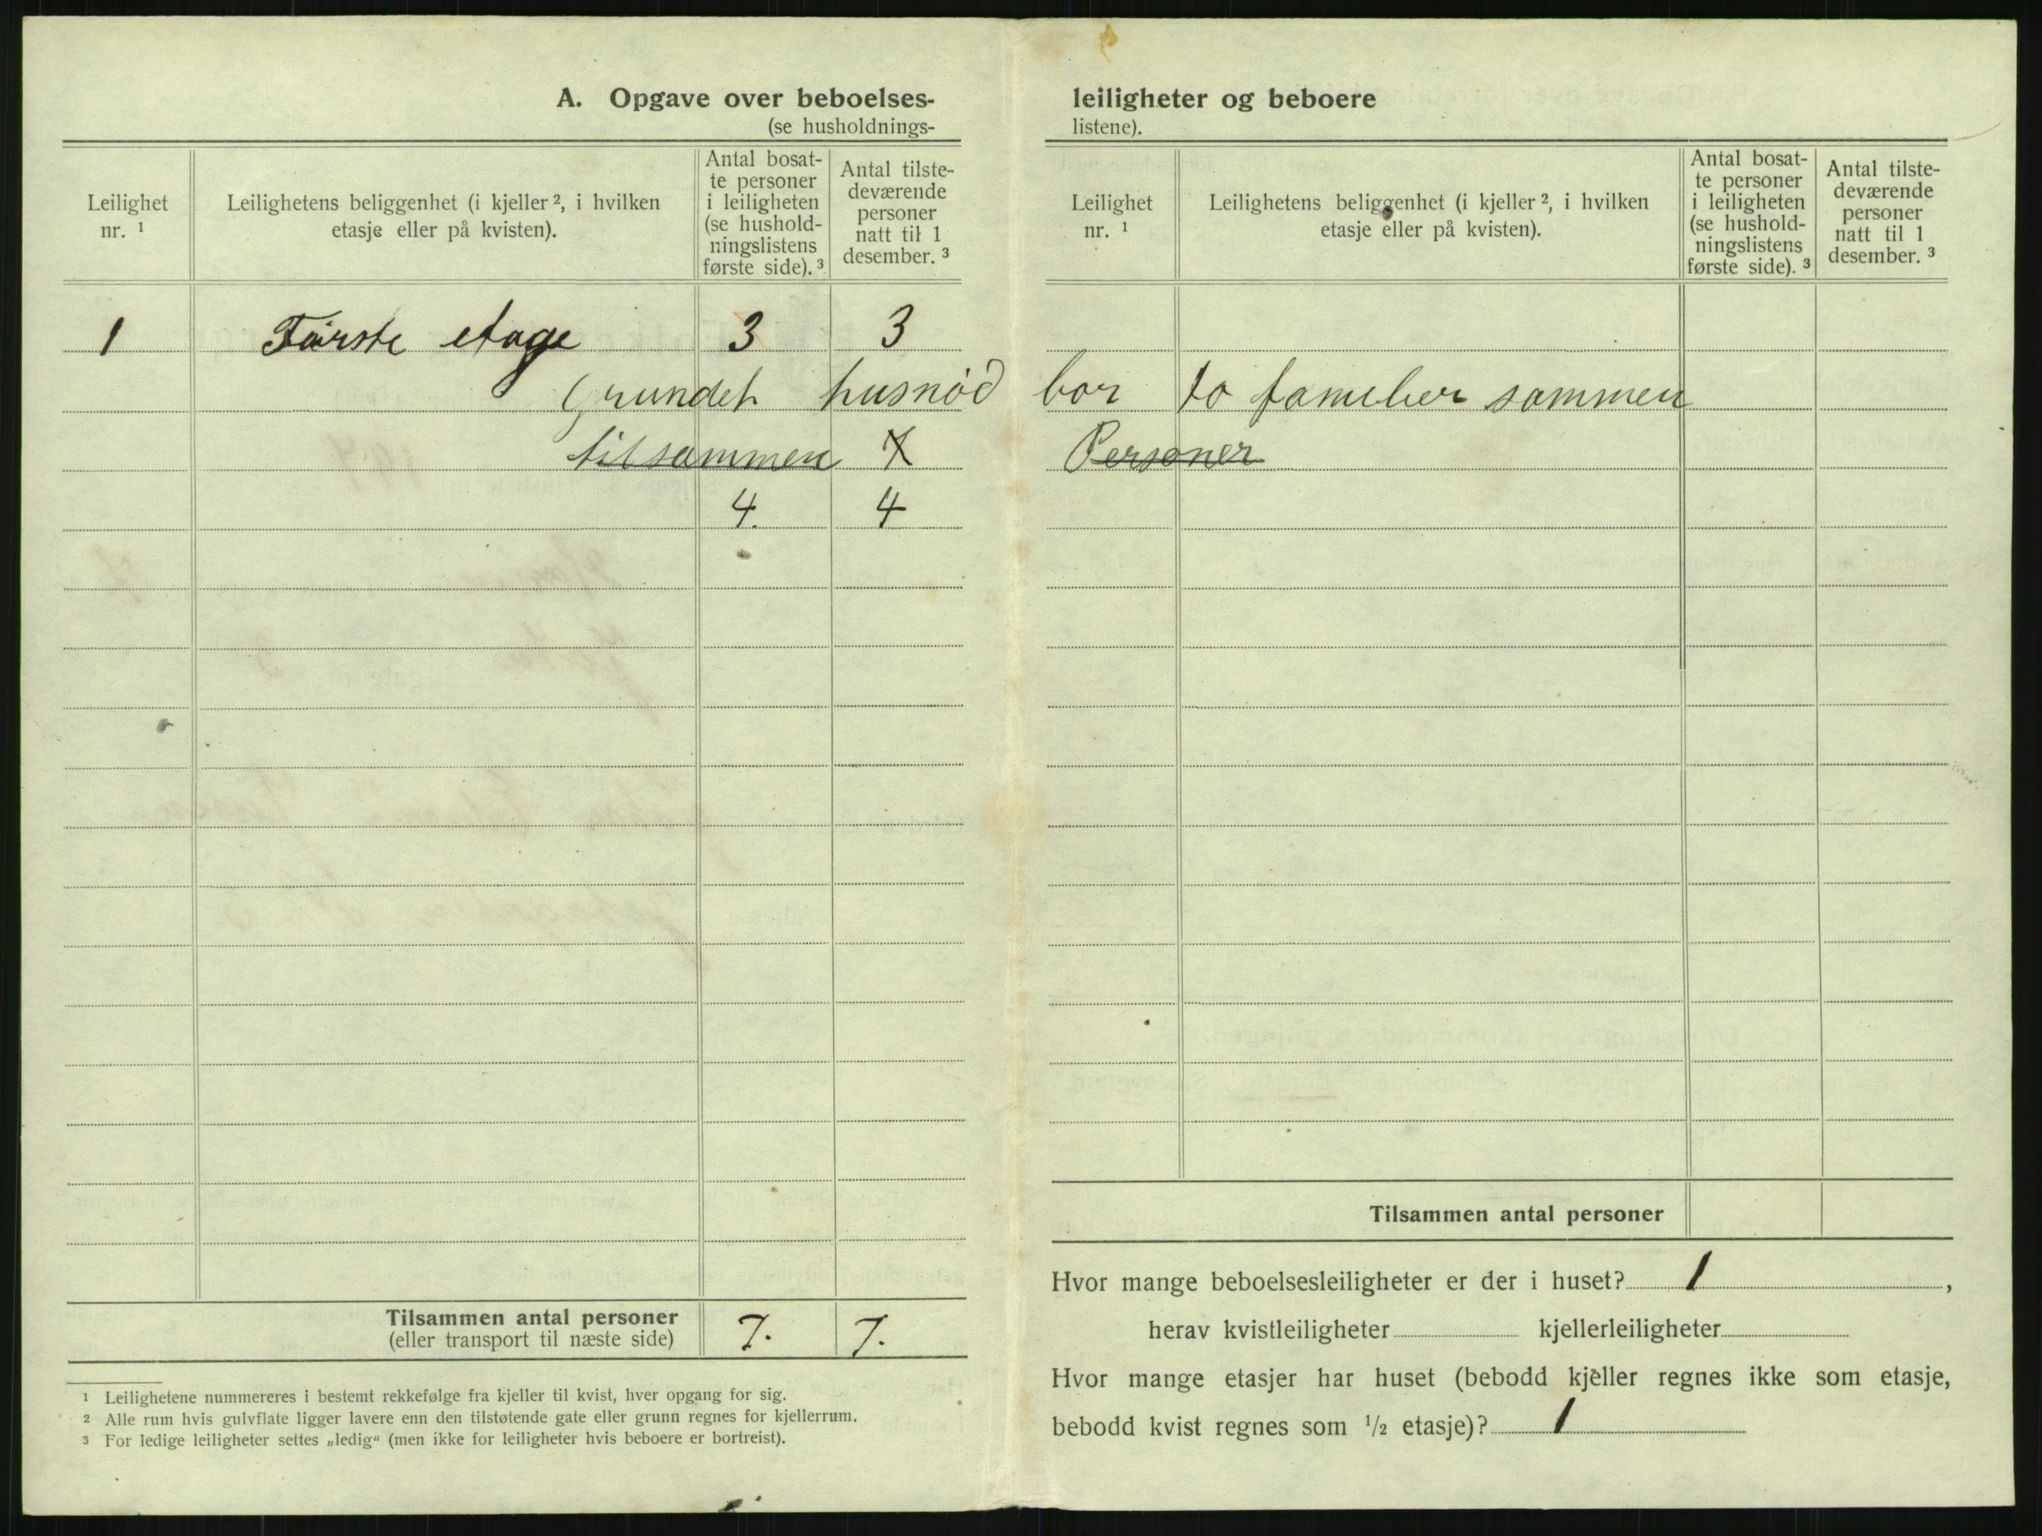 A. Opgave over beboelses-
(se husholdnings-
Leilighet nr. ¹
Leilighetens beliggenhet (i kjeller ², i hvilken etasje eller på kvisten).
Antal bosat-
te personer
i leiligheten
(se hushold-
ningslistens
første side). ³
Antal tilste-
deværende
personer
natt til 1
desember. ³
1 Første etage 3 3
Grundet husnød bor to familier sammen
tilsammen 7 Personer
4. 4
Tilsammen antal personer 7. 7.
(eller transport til næste side)
¹ Leilighetene nummereres i bestemt rekkefølge fra kjeller til kvist, hver opgang for sig.
² Alle rum hvis gulvflate ligger lavere enn den tilstøtende gate eller grunn regnes for kjellerrum.
³ For ledige leiligheter settes „ledig“ (men ikke for leiligheter hvis beboere er bortreist).
leiligheter og beboere
listene).
Leilighet nr. ¹
Leilighetens beliggenhet (i kjeller ², i hvilken etasje eller på kvisten).
Antal bosat-
te personer
i leiligheten
(se hushold-
ningslistens
første side). ³
Antal tilste-
deværende
personer
natt til 1
desember. ³
Tilsammen antal personer
Hvor mange beboelsesleiligheter er der i huset? 1 ,
herav kvistleiligheter kjellerleiligheter
Hvor mange etasjer har huset (bebodd kjeller regnes ikke som etasje,
bebodd kvist regnes som ½ etasje)? 1